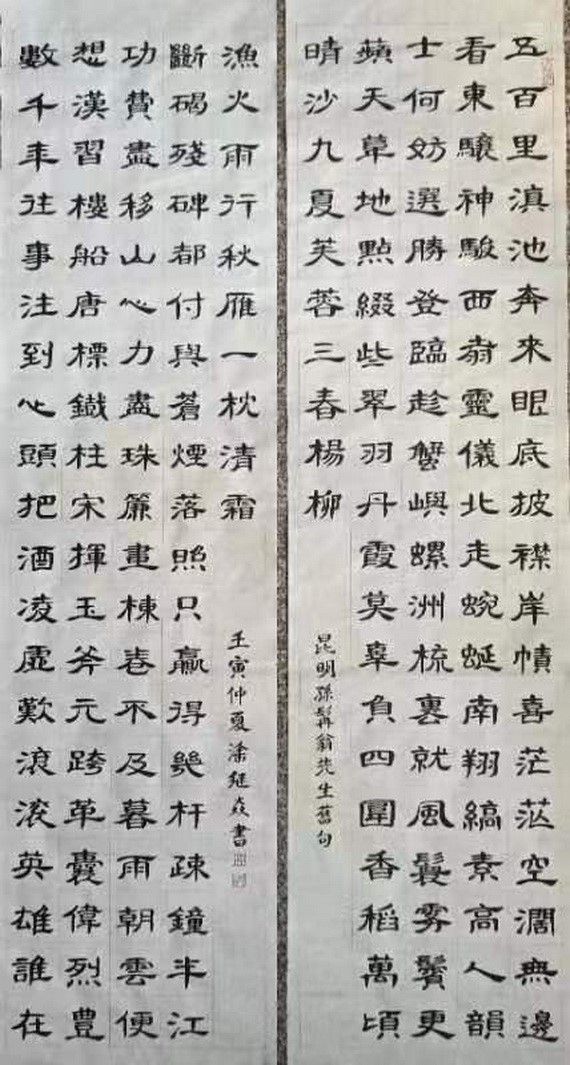 五百里滇池奔來眼底披襟岸幘喜茫茫空濶無邊
看東驤神駿西翥靈儀北走蜿蜒南翔縞素高人韻
士何妨選勝登臨趁蟹嶼螺洲梳裹就風鬟霧鬢更
蘋天葦地點綴些翠羽丹霞莫辜負四圍香稻萬頃
晴沙九夏芙蓉三春楊柳
昆明孫髯翁先生舊句
數千年往事注到心頭把酒凌虛歎滾滾英雄誰在
想漢習樓船唐標鐵柱宋揮玉斧元跨革囊偉烈豐
功費盡移山心力盡珠簾畫棟卷不及暮雨朝雲便
斷碣殘碑都付與蒼煙落照只贏得幾杵疎鐘半江
漁火兩行秋雁一枕清霜
壬寅仲夏潘继焱書